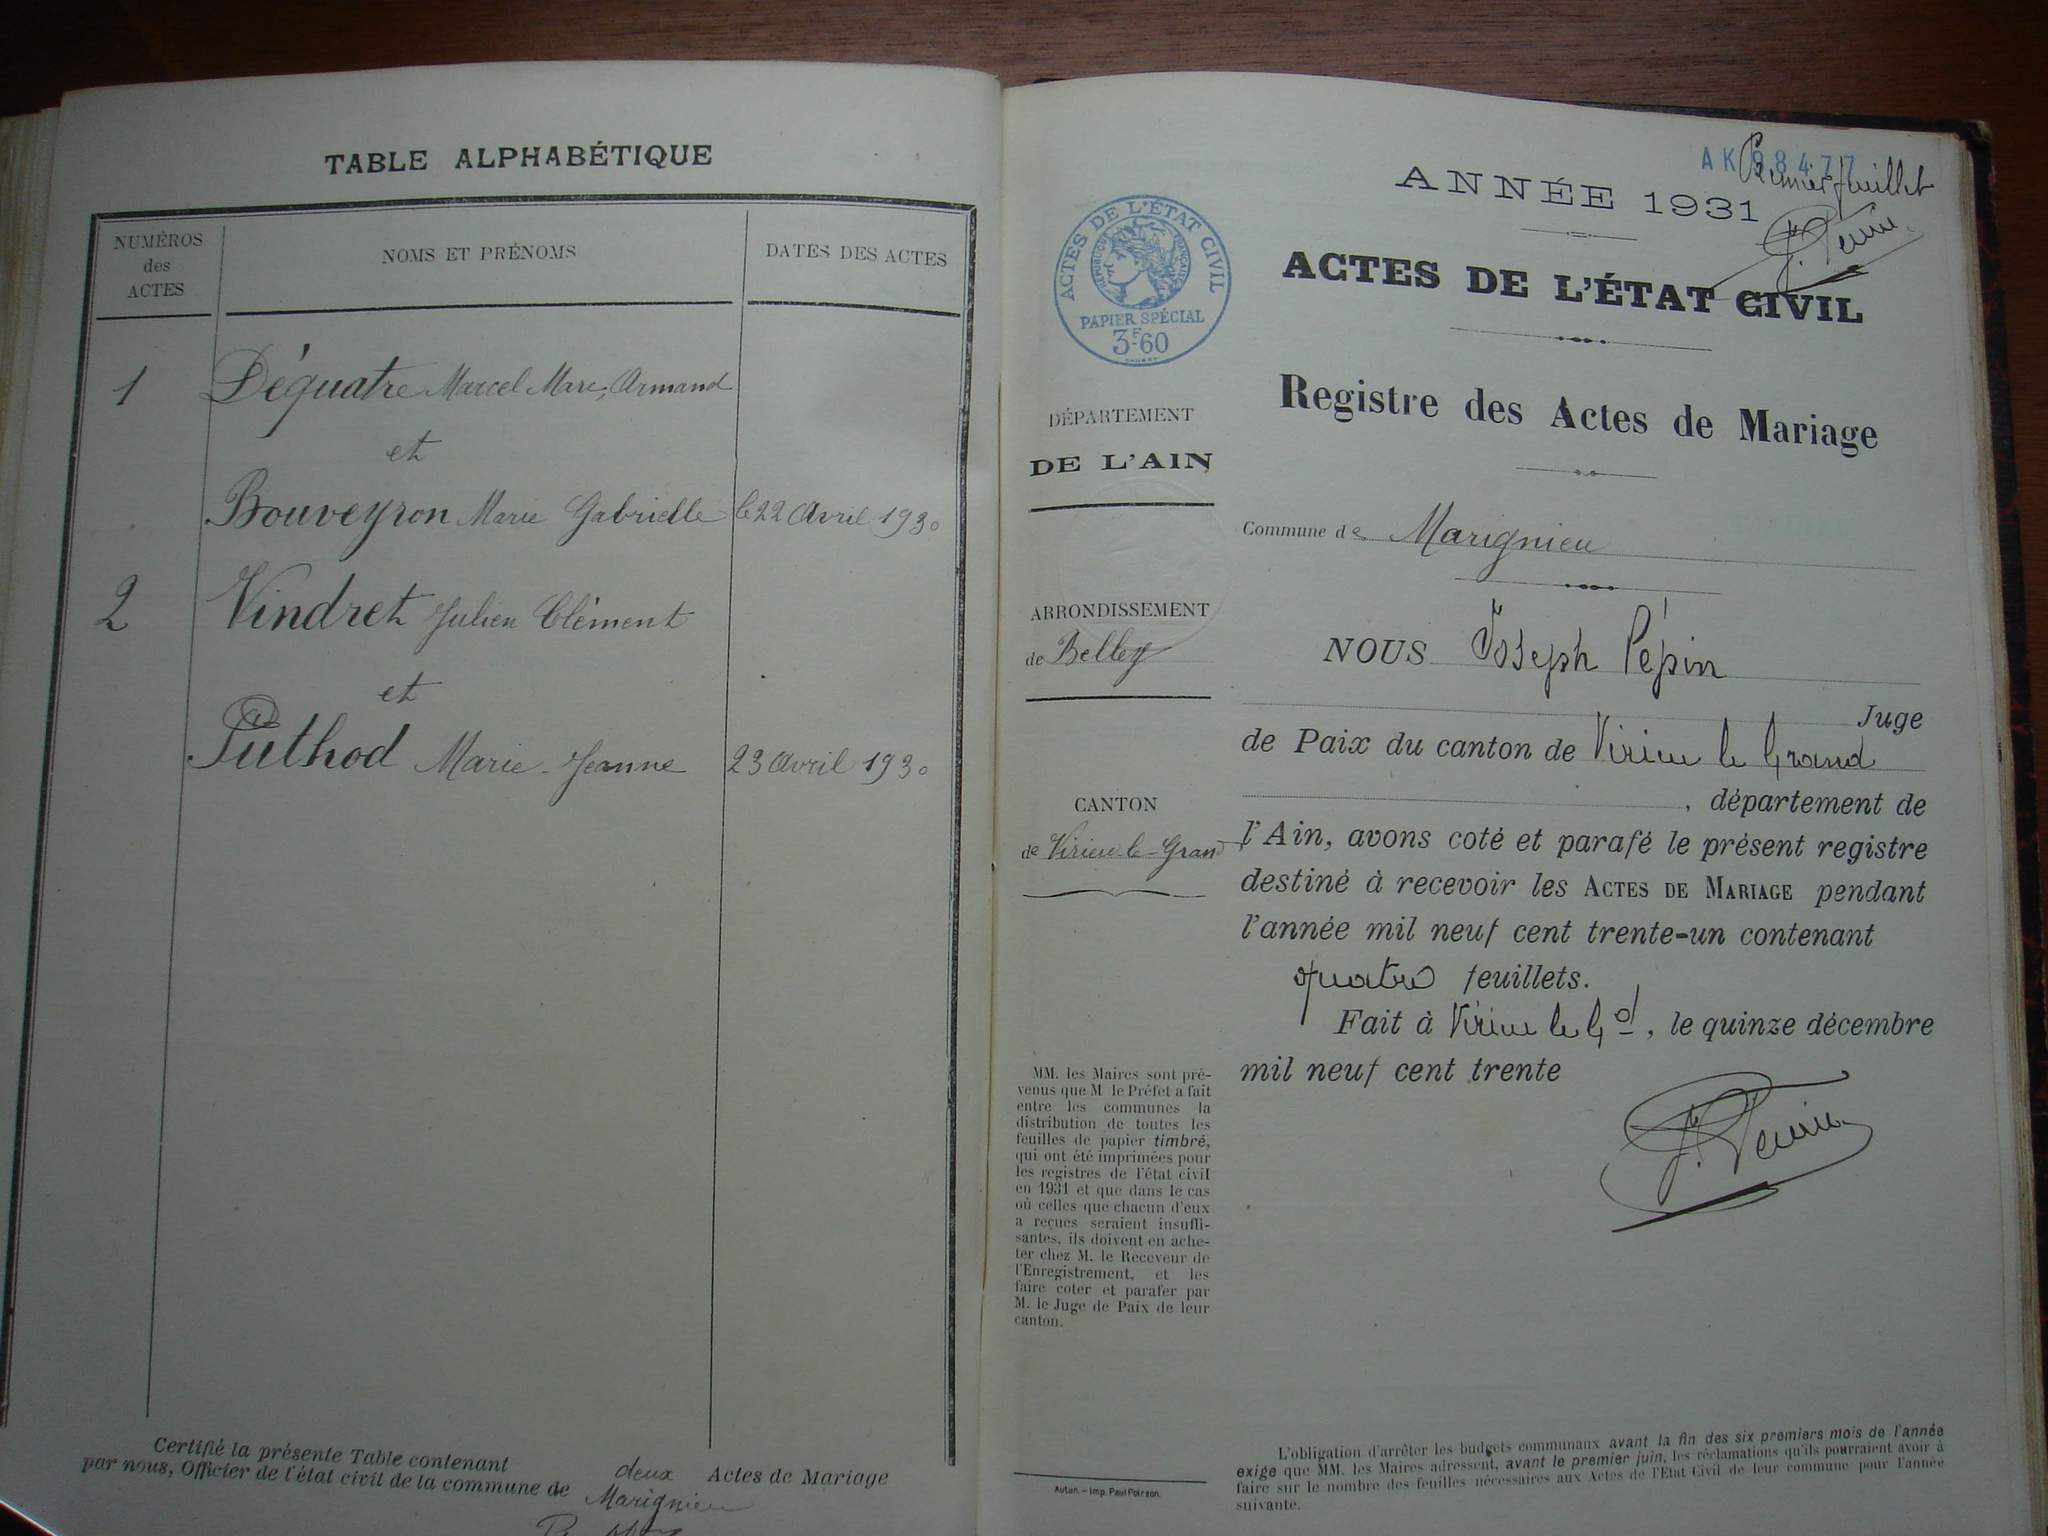 TABLE ALPHABÉTIQUE
NUMÉROS
des
ACTES
NOMS ET PRÉNOMS
DATES DES ACTES
1 Déquatre Marcel Marc, Armand
et
Bouveyron Marie Gabrielle le 22 Avril 1930
2 Vindret Julien Clément
et
Puthod Marie-Jeanne 23 Avril 1930
Certifié la présente Table contenant deux Actes de Mariage
par nous, Officier de l'état civil de la commune de Marignieu
AK 98477
Premier feuillet
J. Pépin
ANNÉE 1931
ACTES DE L'ÉTAT CIVIL
ACTES DE L'ÉTAT CIVIL
RÉPUBLIQUE FRANÇAISE
PAPIER SPÉCIAL
3F.60
Registre des Actes de Mariage
DÉPARTEMENT
DE L'AIN
Commune de Marignieu
ARRONDISSEMENT
de Belley
CANTON
de Virieu-le-Grand
NOUS Joseph Pépin
Juge
de Paix du canton de Virieu le Grand
, département de
l'Ain, avons coté et parafé le présent registre
destiné à recevoir les ACTES DE MARIAGE pendant
l'année mil neuf cent trente-un contenant
quatre feuillets.
Fait à Virieu le Gd, le quinze décembre
mil neuf cent trente
J. Pépin
MM. les Maires sont pré-
venus que M. le Préfet a fait
entre les communes la
distribution de toutes les
feuilles de papier timbré,
qui ont été imprimées pour
les registres de l'état civil
en 1931 et que dans le cas
où celles que chacun d'eux
a reçues seraient insuffi-
santes, ils doivent en ache-
ter chez M. le Receveur de
l'Enregistrement, et les
faire coter et parafer par
M. le Juge de Paix de leur
canton.
Autun. – Imp. Paul Poirson.
L'obligation d'arrêter les budgets communaux avant la fin des six premiers mois de l'année
exige que MM. les Maires adressent, avant le premier juin, les réclamations qu'ils pourraient avoir à
faire sur le nombre des feuilles nécessaires aux Actes de l'Etat Civil de leur commune pour l'année
suivante.